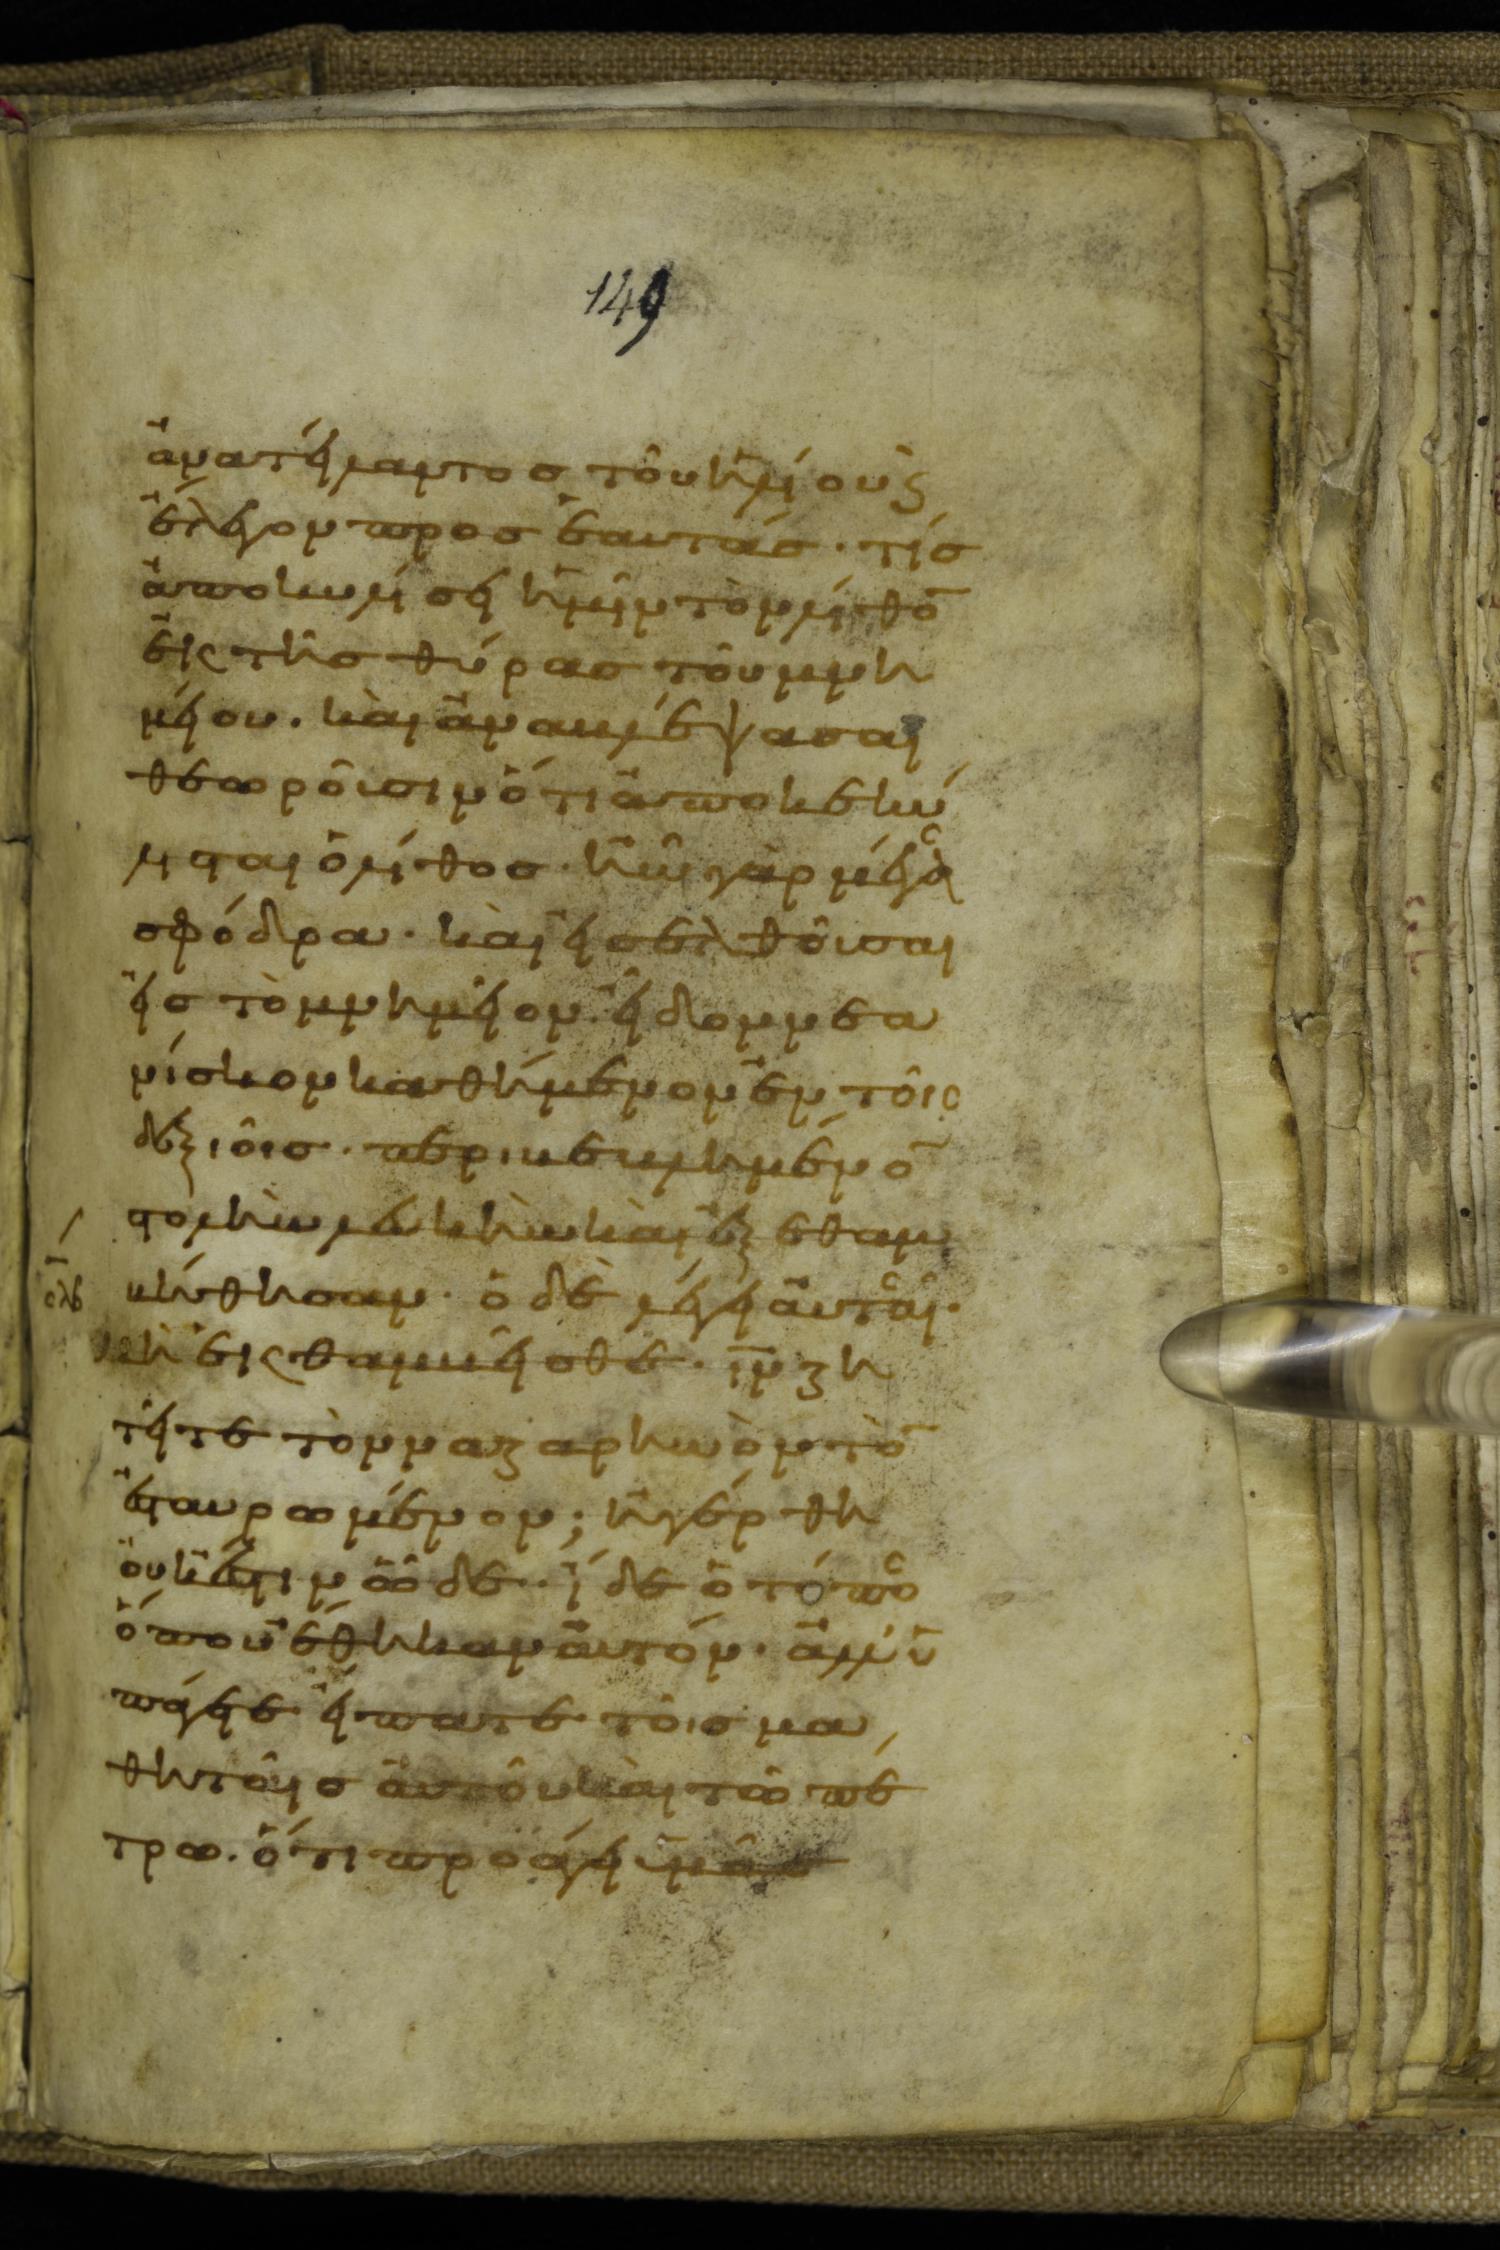 149
ἀνατείλαντος τοῦ ἡλίου κ̀
ἔλεγον προς ἑαυτάς· τίς
ἀποκυλίσει ἡμῖν τὸν λίθο̄
εἰς τῆς θύρας τοῦ μνη
μείου. καὶ ἀναβλέψασαι
θεωροῦσιν ὅτι ἀποκεκύ
λισται ὁ λίθος· ἦν γὰρ μέγας
σφόδρα· καὶ εἰσελθοῦσαι
εἰς τὸ μνημεῖον· εἶδον νεα
νίσκον καθήμενον ἐν τοῖς
δεξιοῖς· περιβεβλημένο̄
στολὴν λευκὴν καὶ ἐξεθαμ
βήθησαν· ὁ δὲ λέγει αὐταῖς·
μὴ ἐκθαμβεῖσθε· ι̅ν̅ ζη
τεῖτε τὸν ναζαρηνὸν τὸ̄
ἐσταυρωμένον; ἠγέρθη
οὐκ ἔστιν ὧδε· ἴδε ὁ τόπος
ὅπου ἔθηκαν αὐτόν· ἀλλ' ὑ
πάγετε εἴπατε τοῖς μα
θηταῖς αὐτοῦ καὶ τῶ πέ
τρω. ὅτι προάγει ὑμᾶς